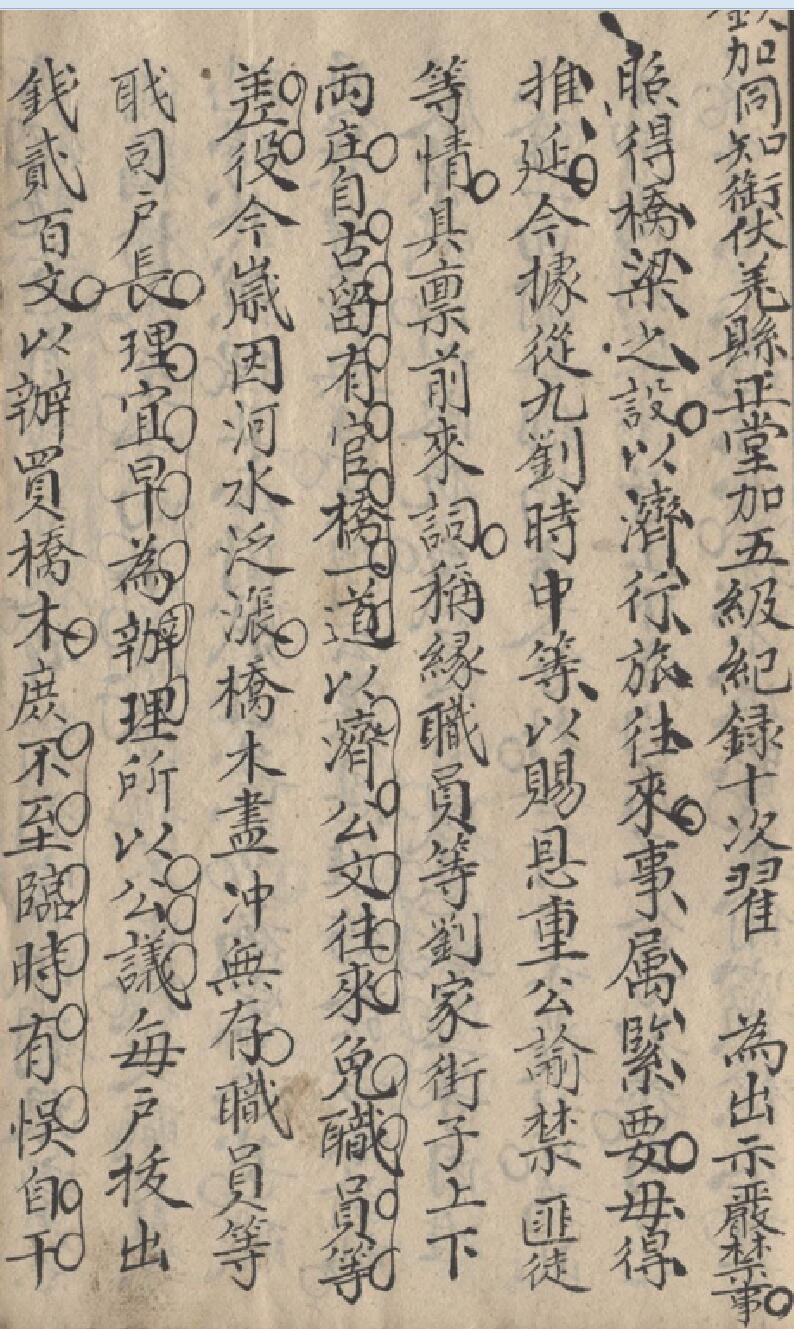 欽加同知銜伏羌縣正堂加五級紀録十次翟　為出示嚴禁事
照得橋梁之設以濟行旅往來事属緊要毋得
推延今據從九劉時中等以賜恳重公諭禁匪徒
等情具禀前來詞稱緣職員等劉家街子上下
両庄自古留有官橋一道以濟公文往來免職員等
差役今嵗因河水泛漲橋木盡冲無存職員等
戢司户長理宜早為辦理所以公議每户拨出
銭貳百文以辦買橋木庶不至臨時有悮自干